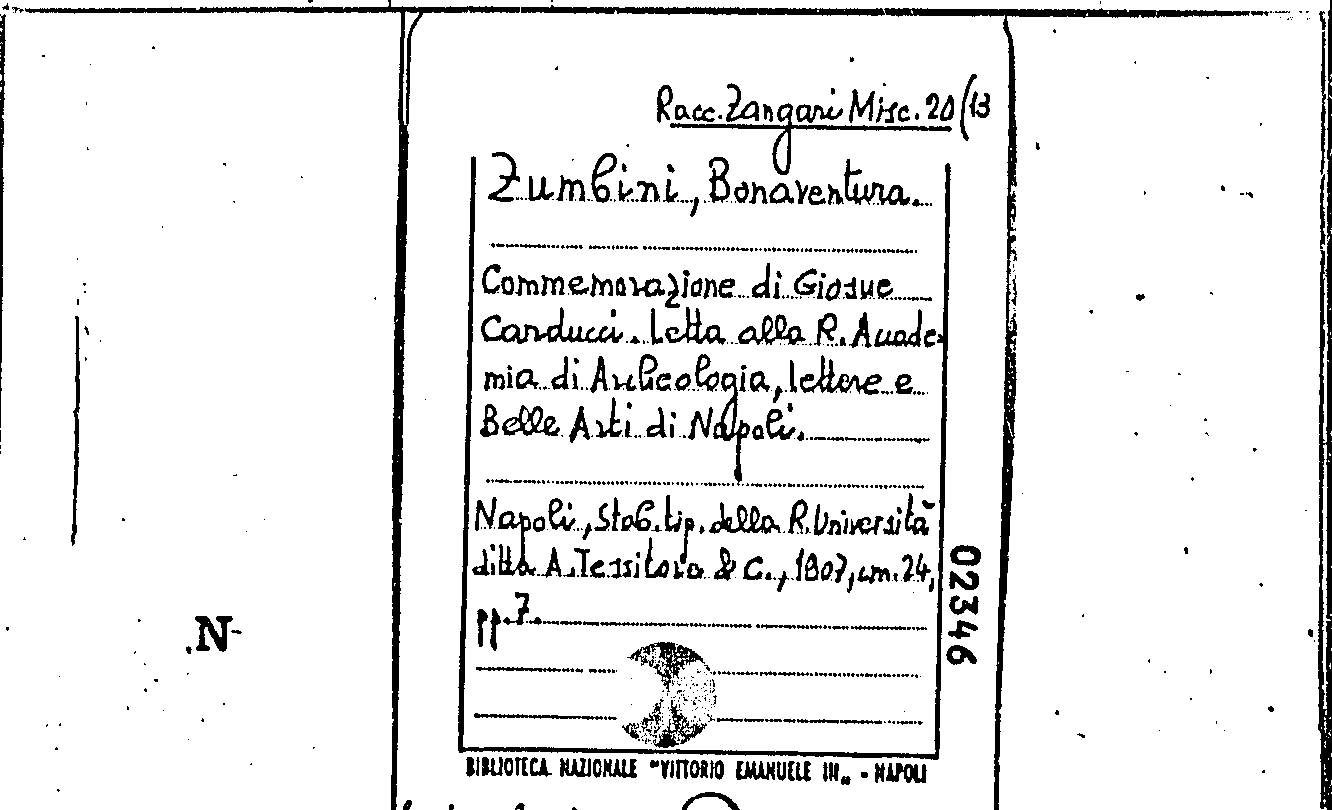 Racc. Zangari Misc. 20(13
Zumbini, Bonaventura.
Commemorazione di Giosue
Carducci. Letta alla R. Accade-
mia di Archeologia, lettere e
Belle Arti di Napoli.
Napoli, Stab. tip. della R. Università
ditta A. Tessitore & C., 1907, cm. 24,
pp. 7.
02346
.N-
BIBLIOTECA NAZIONALE "VITTORIO EMANUELE III" - NAPOLI